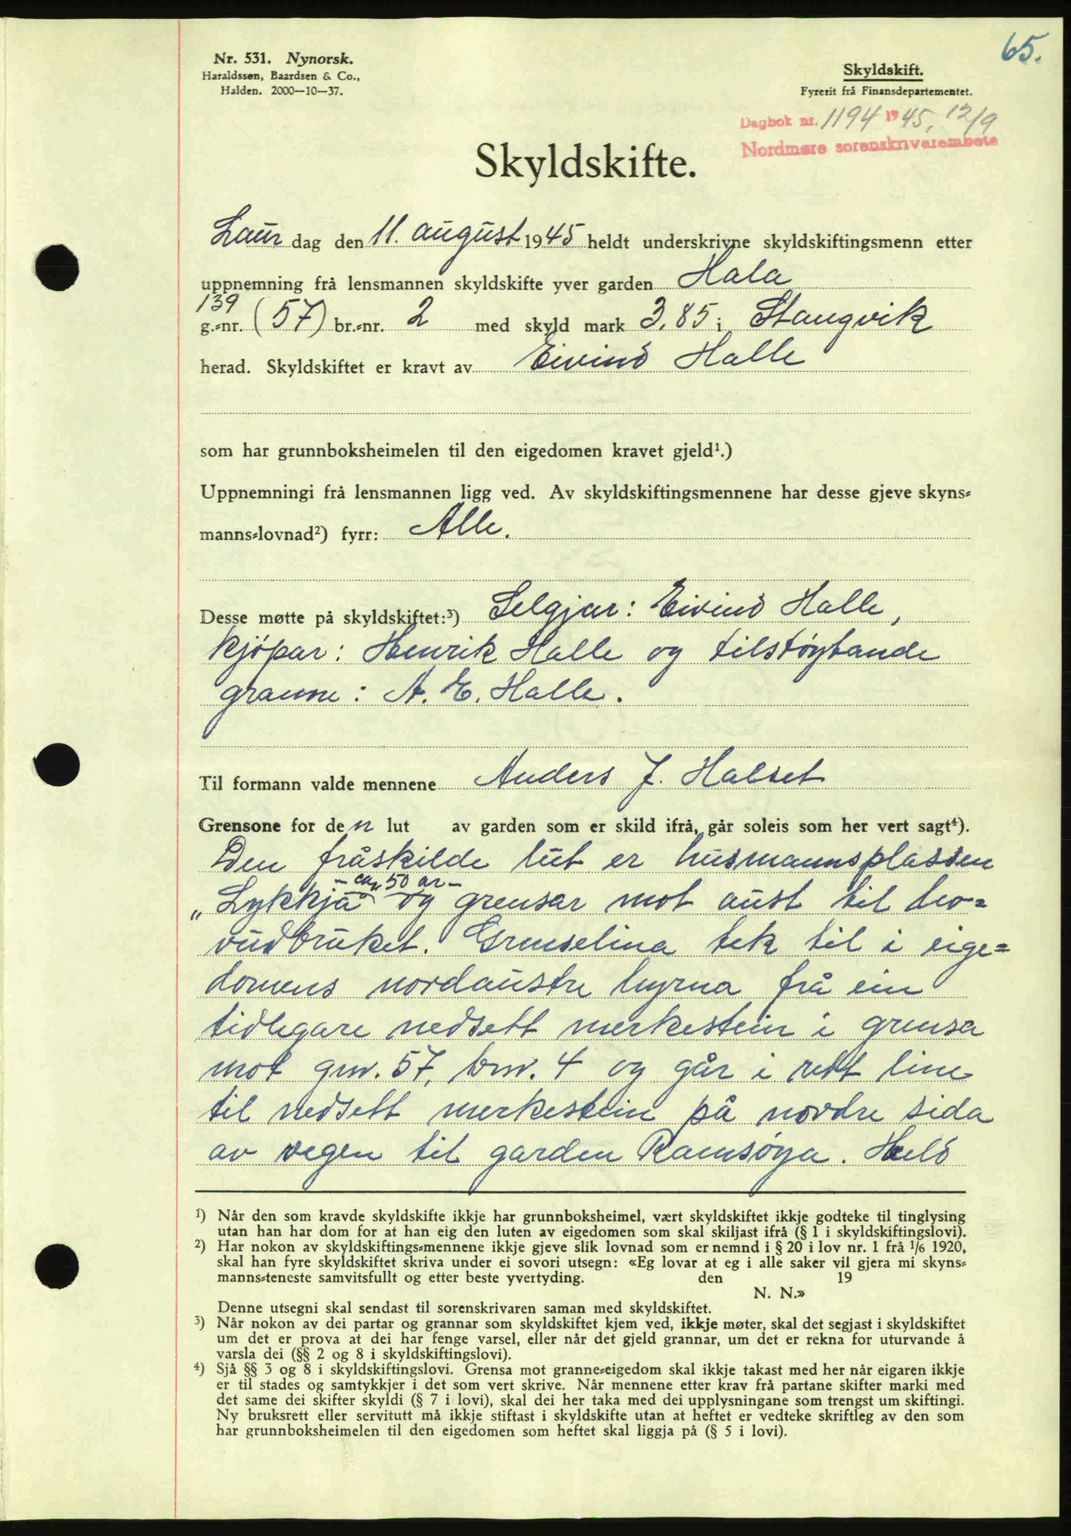 65.
Nr. 531. Nynorsk.
Haraldssen, Baardsen & Co.,
Halden. 2000—10—37.
Skyldskift.
Fyrerit frå Finansdepartementet.
Dagbok nr. 1194 1945, 12/9
Nordmøre sorenskrivarembete
Skyldskifte.
Laur dag den 11. august 1945 heldt underskrivne skyldskiftingsmenn etter
uppnemning frå lensmannen skyldskifte yver garden Hala
139
g.-nr. (57) br.-nr. 2 med skyld mark 3,85 i Stangvik
herad. Skyldskiftet er kravt av Eivind Halle
som har grunnboksheimelen til den eigedomen kravet gjeld¹.)
Uppnemningi frå lensmannen ligg ved. Av skyldskiftingsmennene har desse gjeve skyns-
manns-lovnad²) fyrr: Alle.
Desse møtte på skyldskiftet:³) Seljar: Eivind Halle,
kjøpar: Henrik Halle og tilstøytande
granne: A. E. Halle.
Til formann valde mennene Anders J. Halset
Grensone for den lut av garden som er skild ifrå, går soleis som her vert sagt⁴).
Den fråskilde lut er husmannsplassen
- ca. 50 ar -
„Lykkja" og grensar mot aust til ho-
vudbruket. Grenselina tek til i eige-
domens nordaustre hyrna frå ein
tidlegare nedsett merkestein i grensa
mot gnr. 57, brnr. 4 og går i rett line
til nedsett merkestein på nordre sida
av vegen til garden Ramsøya. Held
¹) Når den som kravde skyldskifte ikkje har grunnboksheimel, vært skyldskiftet ikkje godteke til tinglysing
utan han har dom for at han eig den luten av eigedomen som skal skiljast ifrå (§ 1 i skyldskiftingslovi).
²) Har nokon av skyldskiftings-mennene ikkje gjeve slik lovnad som er nemnd i § 20 i lov nr. 1 frå 1/6 1920,
skal han fyre skyldskiftet skriva under ei sovori utsegn: «Eg lovar at eg i alle saker vil gjera mi skyns-
manns-teneste samvitsfullt og etter beste yvertyding. den 19
N. N.»
Denne utsegni skal sendast til sorenskrivaren saman med skyldskiftet.
³) Når nokon av dei partar og grannar som skyldskiftet kjem ved, ikkje møter, skal det segjast i skyldskiftet
um det er prova at dei har fenge varsel, eller når det gjeld grannar, um det er rekna for uturvande å
varsla dei (§§ 2 og 8 i skyldskiftingslovi).
⁴) Sjå §§ 3 og 8 i skyldskiftingslovi. Grensa mot granne-eigedom skal ikkje takast med her når eigaren ikkje
er til stades og samtykkjer i det som vert skrive. Når mennene etter krav frå partane skifter marki med
det same dei skifter skyldi (§ 7 i lovi), skal dei her taka med dei upplysningane som trengst um skiftingi.
Ny bruksrett eller servitutt må ikkje stiftast i skyldskifte utan at heftet er vedteke skriftleg av den som
har grunnboksheimelen til den eigedomen som heftet skal liggja på (§ 5 i lovi).